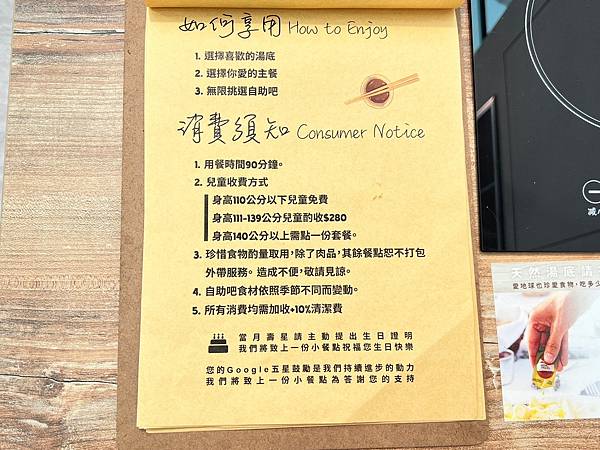 如何享用 How to Enjoy
1. 選擇喜歡的湯底
2. 選擇你愛的主餐
3. 無限挑選自助吧
消費須知 Consumer Notice
1. 用餐時間90分鐘。
2. 兒童收費方式
身高110公分以下兒童免費
身高111-139公分兒童酌收$280
身高140公分以上需點一份套餐。
3. 珍惜食物酌量取用,除了肉品,其餘餐點恕不打包
外帶服務。造成不便,敬請見諒。
4. 自助吧食材依照季節不同而變動。
5. 所有消費均需加收+10%清潔費
當月壽星請主動提出生日證明
我們將致上一份小餐點祝福您生日快樂
您的Google五星鼓勵是我們持續進步的動力
我們將致上一份小餐點為答謝您的支持
減
天然湯底請
愛地球也珍愛食物,吃多少